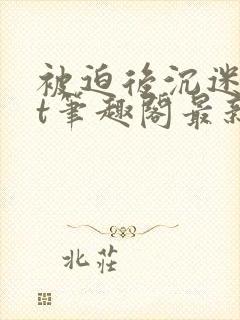 被迫后沉迷
t笔趣阁最新
北莊